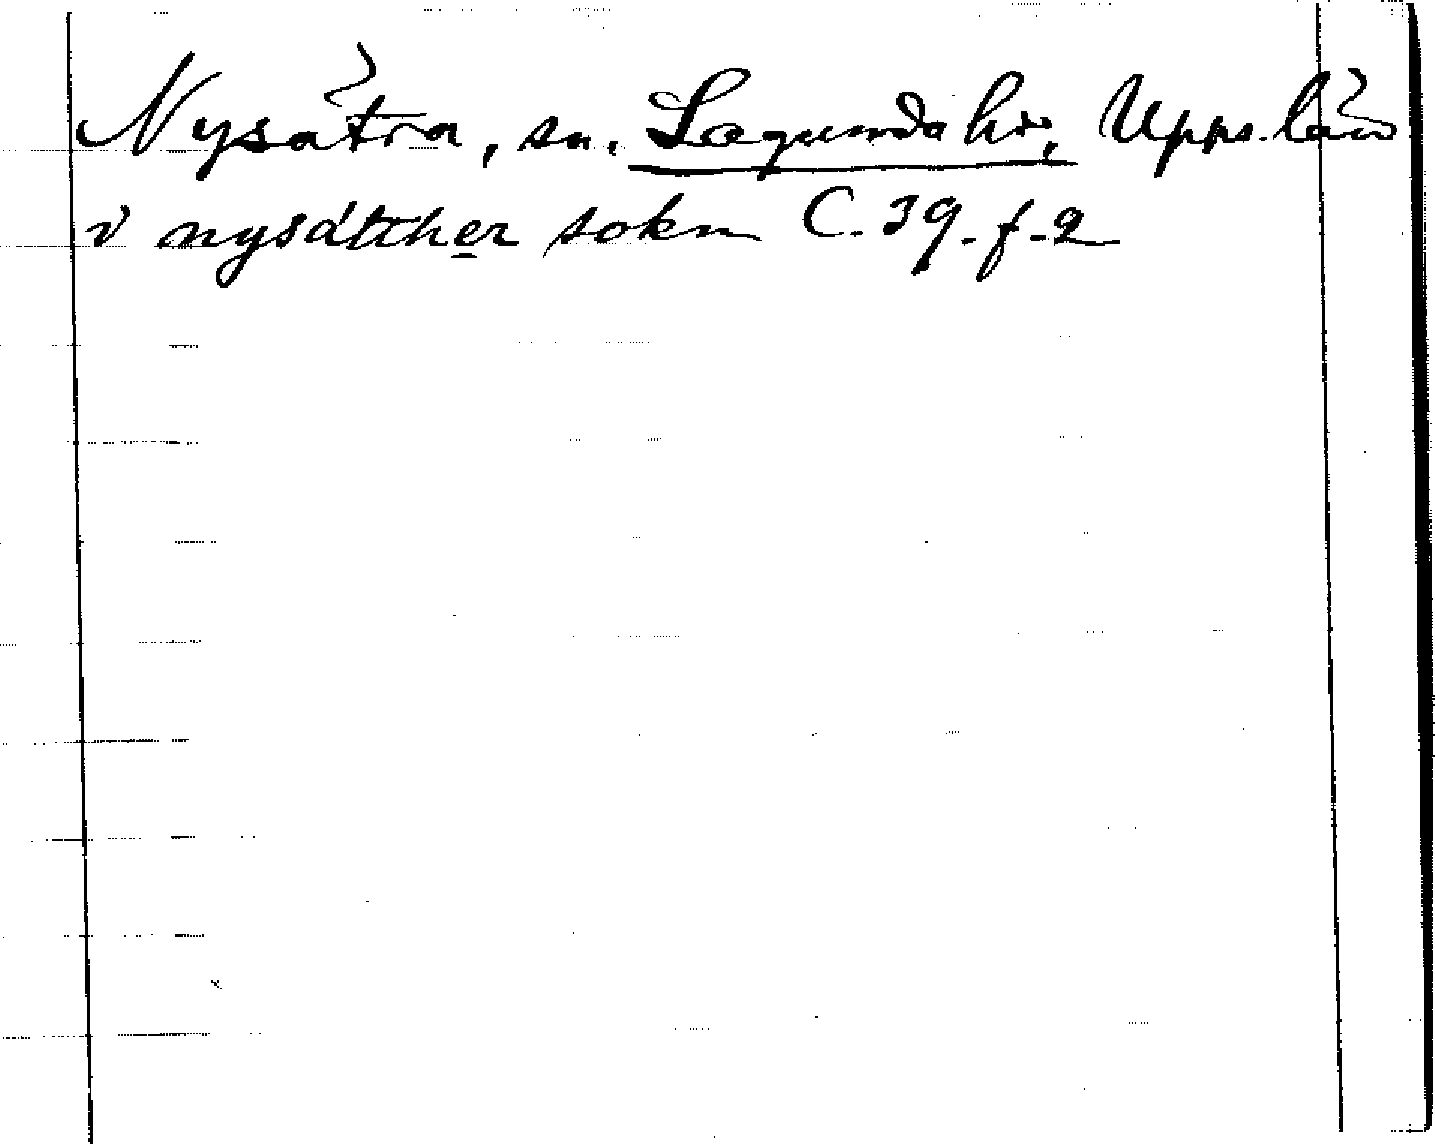 Nysätra, sn. Lagunda hd., Upps. län
i nysätther sokn C. 39. f. 2